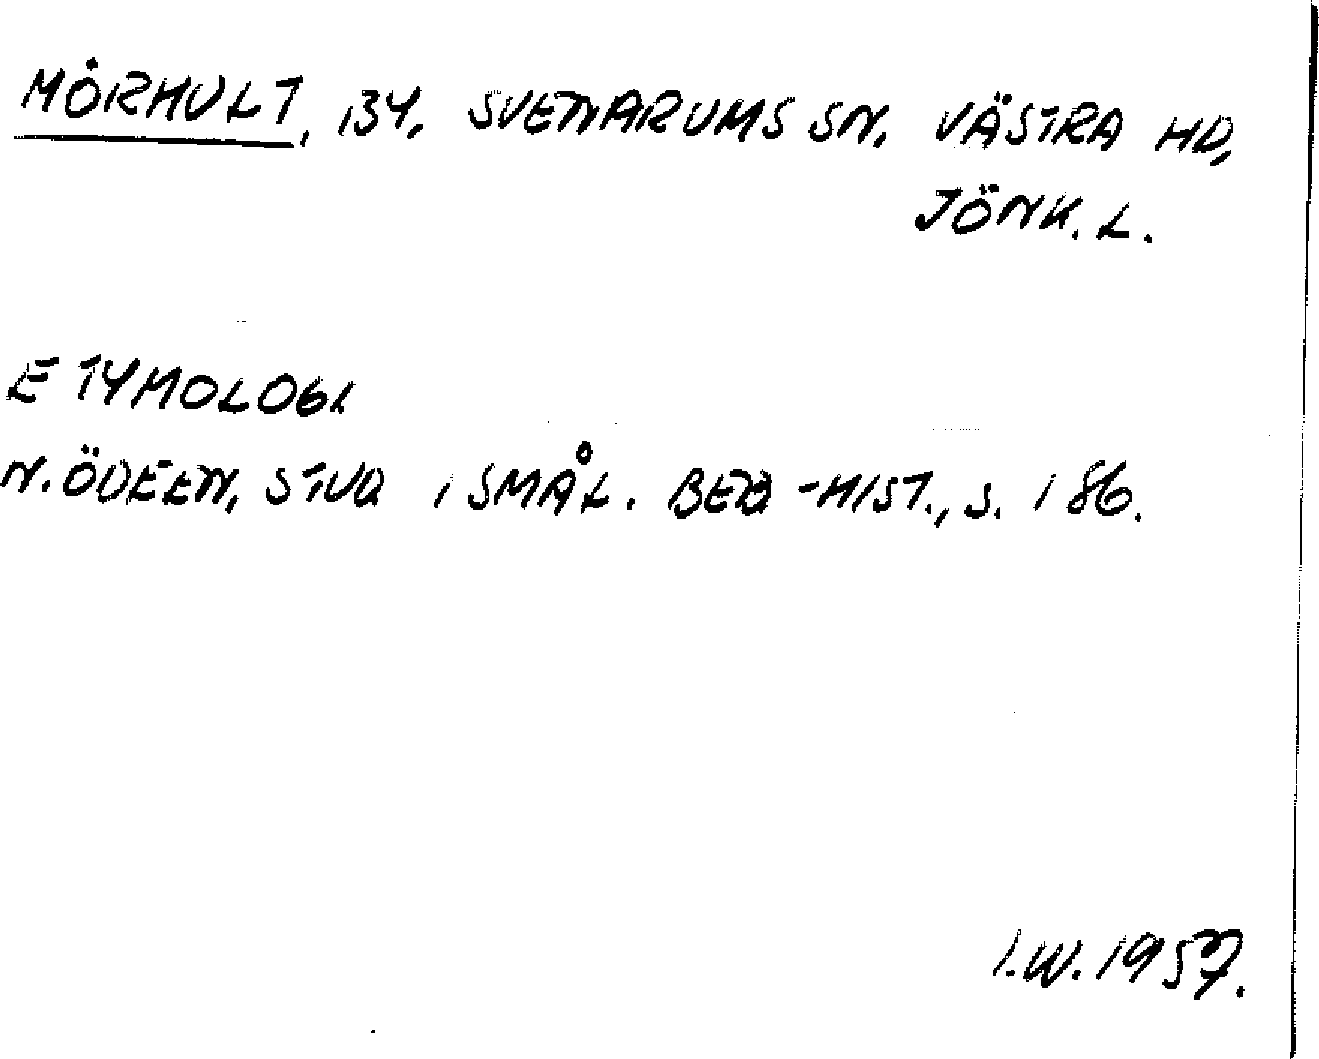 MÖRHULT, BY, SVENARUMS SN, VÄSTRA HD,
JÖNK. L.
ETYMOLOGI
N. ÖDEEN, STUD I SMÅL. BEB-HIST., S. 186.
I.W. 1957.